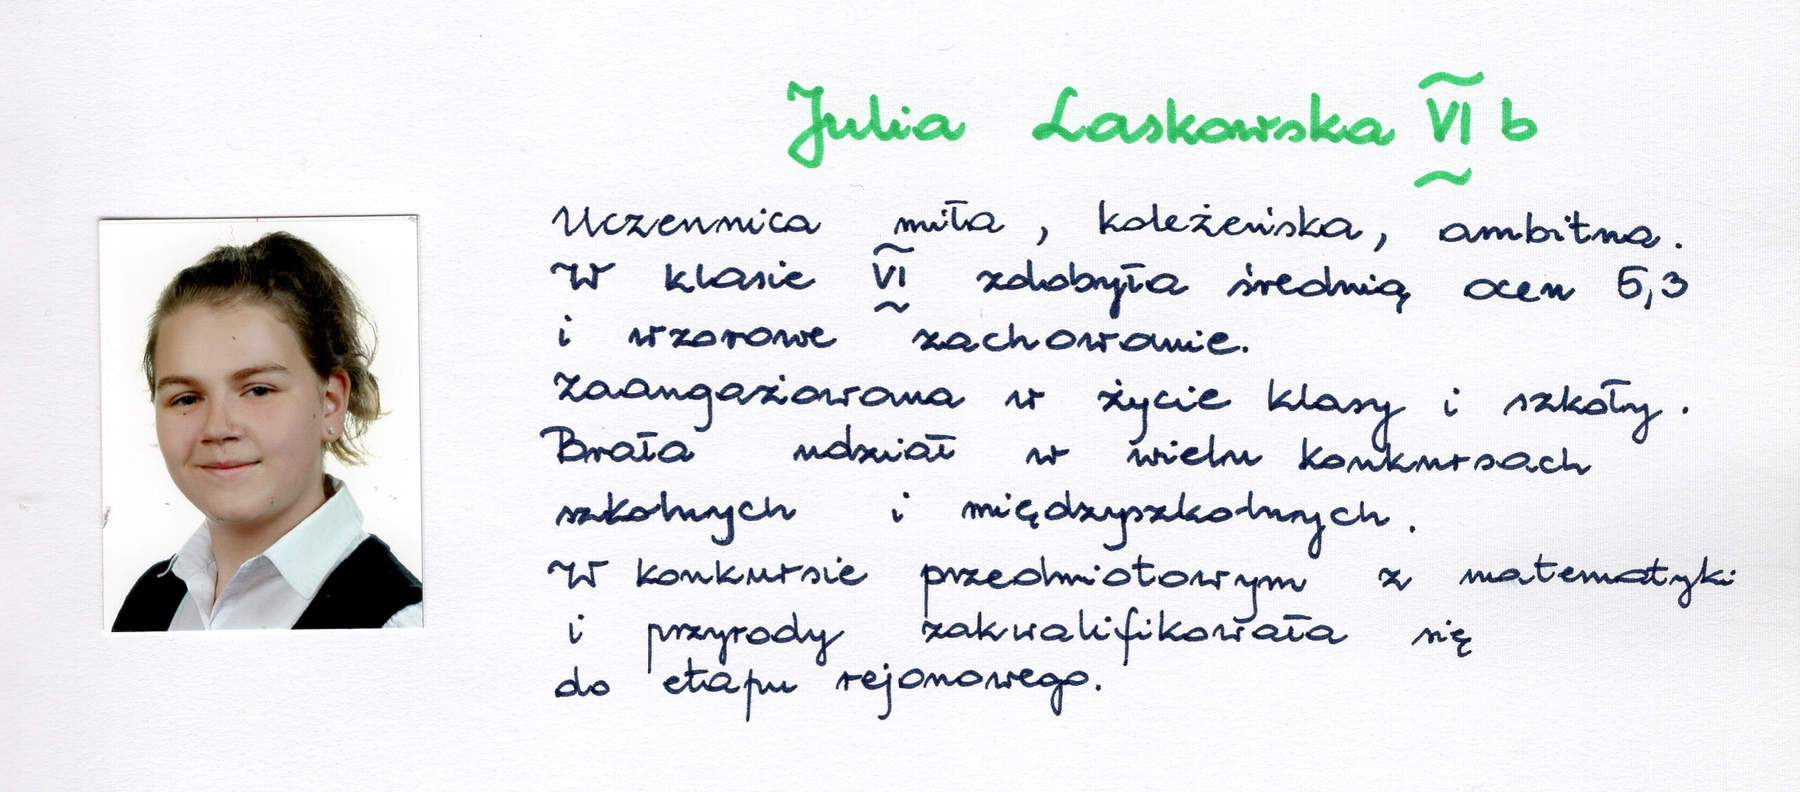 Julia Laskowska VI b
Uczennica miła, koleżeńska, ambitna.
W klasie VI zdobyła średnią ocen 5,3
i wzorowe zachowanie.
Zaangażowana w życie klasy i szkoły.
Brała udział w wielu konkursach
szkolnych i międzyszkolnych.
W konkursie przedmiotowym z matematyki
i przyrody zakwalifikowała się
do etapu rejonowego.